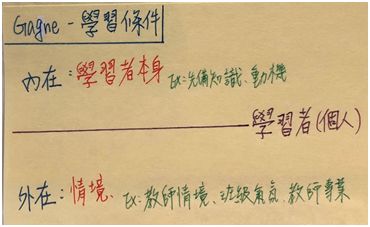 Gagne - 學習條件
內在：學習者本身 Ex:先備知識、動機
學習者(個人)
外在：情境、Ex:教師情境、班級氣氛、教師專業